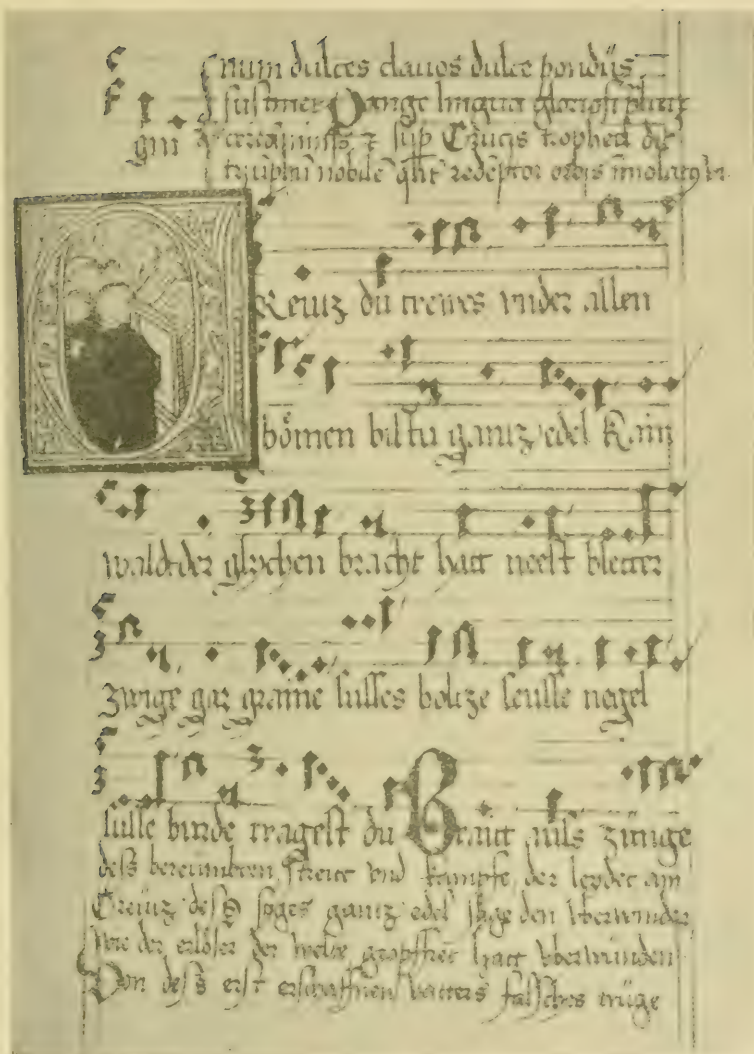 num dulces clauos dulce pondus
sustinet Pange lingua gloriosi
gni certaminis et sup Crucis tropheu dic
triūphū nobile qlit redēptor orbis imolatus
O Kreuiz du trewes vnder allen
bömen bistu gantz edel kain
waldt der glychen bracht hatt neest bletter
zwige gar graine susses holtze seusse negel
susse binde tragest du Brait zünge
dess beruembten streitt vnd kampfs der
Creutz dess ganntz edel sige den vberwinder
wie der erlöser der welte geopffret hatt vberwunden
Von dess erst erschaffnen vatters falsches trüge